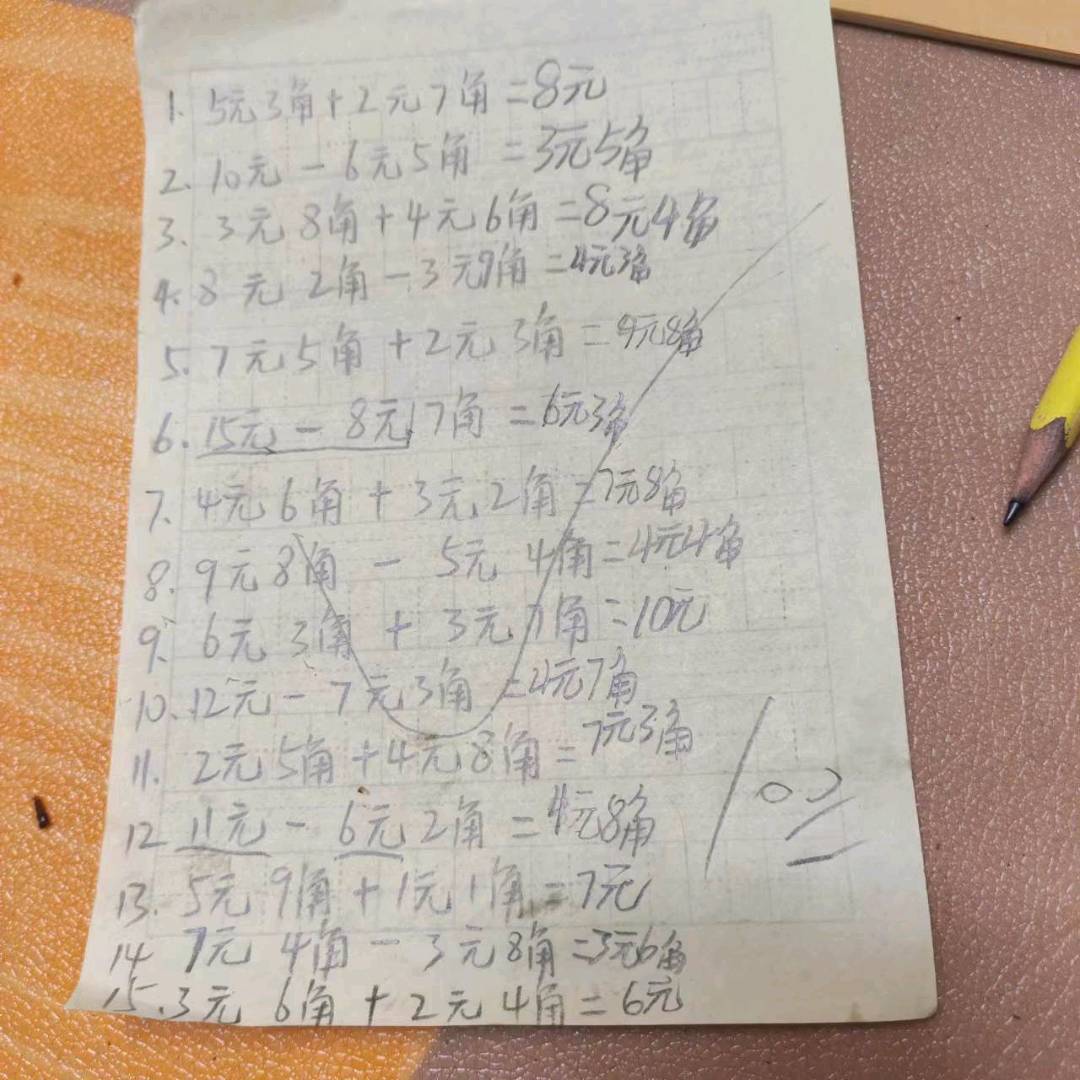 1. 5元3角+2元7角=8元
2. 10元-6元5角=3元5角
3. 3元8角+4元6角=8元4角
4. 8元2角-3元9角=4元3角
5. 7元5角+2元3角=9元8角
6. 15元-8元7角=6元3角
7. 4元6角+3元2角=7元8角
8. 9元8角-5元4角=4元4角
9. 6元3角+3元7角=10元
10. 12元-7元3角=4元7角
11. 2元5角+4元8角=7元3角
12 11元-6元2角=4元8角
13. 5元9角+1元1角=7元
14 7元4角-3元8角=3元6角
15. 3元6角+2元4角=6元
100